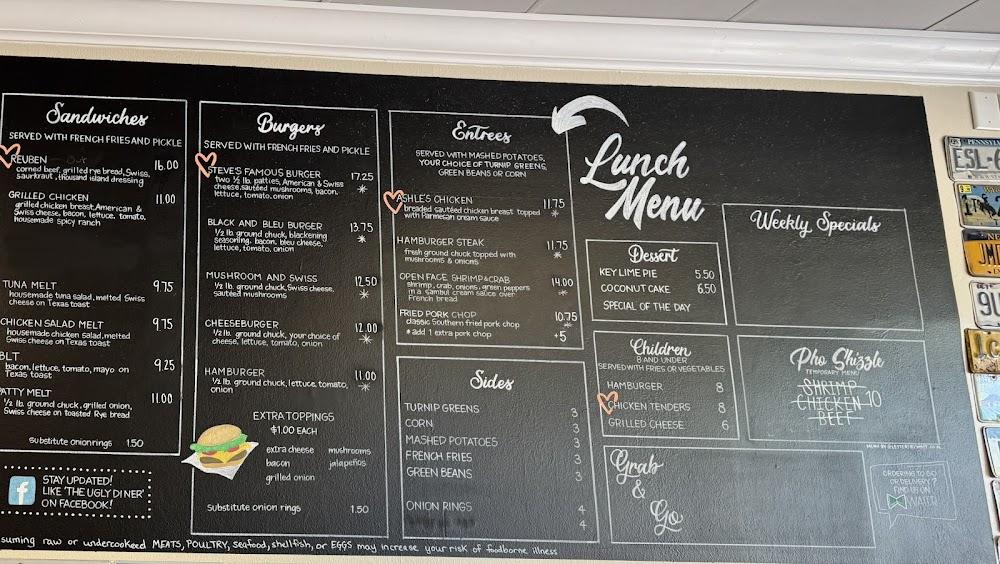 Sandwiches
SERVED WITH FRENCH FRIES AND PICKLE
REUBEN 16.00
corned beef, grilled rye bread, Swiss,
saurkraut, thousand island dressing
GRILLED CHICKEN 11.00
grilled chicken breast, American &
Swiss cheese, bacon, lettuce, tomato,
housemade spicy ranch
TUNA MELT 9.75
housemade tuna salad, melted Swiss
cheese on Texas toast
CHICKEN SALAD MELT 9.75
housemade chicken salad, melted
Swiss cheese on Texas toast
BLT 9.25
bacon, lettuce, tomato, mayo on
Texas toast
PATTY MELT 11.00
½ lb. ground chuck, grilled onion,
Swiss cheese on toasted Rye bread
Substitute onion rings 1.50
STAY UPDATED!
LIKE 'THE UGLY DINER'
ON FACEBOOK!
Burgers
SERVED WITH FRENCH FRIES AND PICKLE
STEVE'S FAMOUS BURGER 17.25
two ½ lb. patties, American & Swiss *
cheese, sautéed mushrooms, bacon,
lettuce, tomato, onion
BLACK AND BLEU BURGER 13.75
½ lb. ground chuck, blackening *
seasoning, bacon, bleu cheese,
lettuce, tomato, onion
MUSHROOM AND SWISS 12.50
½ lb. ground chuck, Swiss cheese, *
sautéed mushrooms
CHEESEBURGER 12.00
½ lb. ground chuck, your choice of *
cheese, lettuce, tomato, onion
HAMBURGER 11.00
½ lb. ground chuck, lettuce, tomato, *
onion
EXTRA TOPPINGS
$1.00 EACH
extra cheese mushrooms
bacon jalapeños
grilled onion
Substitute onion rings 1.50
Entrees
SERVED WITH MASHED POTATOES,
YOUR CHOICE OF TURNIP GREENS,
GREEN BEANS OR CORN
ASHLE'S CHICKEN 11.75
breaded sautéed chicken breast topped *
with Parmesan cream sauce
HAMBURGER STEAK 11.75
fresh ground chuck topped with *
mushrooms & onions
OPEN FACE SHRIMP & CRAB 14.00
shrimp, crab, onions, green peppers *
in a sambul cream sauce over
French bread
FRIED PORK CHOP 10.75
classic Southern fried pork chop *
* add 1 extra pork chop +5
Sides
TURNIP GREENS 3
CORN 3
MASHED POTATOES 3
FRENCH FRIES 3
GREEN BEANS 3
ONION RINGS 4
4
Lunch
Menu
Dessert
KEY LIME PIE 5.50
COCONUT CAKE 6.50
SPECIAL OF THE DAY
Children
8 AND UNDER
SERVED WITH FRIES OR VEGETABLES
HAMBURGER 8
CHICKEN TENDERS 8
GRILLED CHEESE 6
Grab
&
Go
Weekly Specials
Pho Shizzle
TEMPORARY MENU
SHRIMP
CHICKEN 10
BEEF
ORDERING TO GO
OR DELIVERY?
FIND US ON
WAITR
suming raw or undercooked MEATS, POULTRY, seafood, shellfish, or EGGS may increase your risk of foodborne illness
PENNSYLV
ESL-
JM